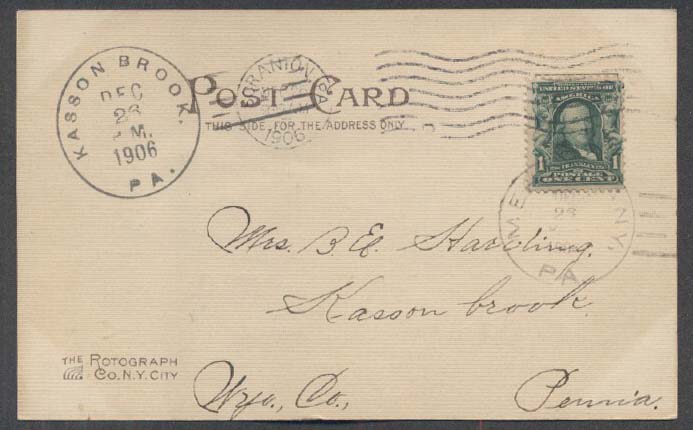 KASSON BROOK.
DEC
26
P.M.
1906
PA.
SCRANTON, PA.
1906
POST CARD
THIS SIDE FOR THE ADDRESS ONLY.
UNITED STATES OF
AMERICA
1 1
FRANKLIN
POSTAGE
ONE CENT
26
PA.
Mrs. B. E. Harding.
Kasson brook.
Wyo., Co., Penna.
THE ROTOGRAPH
Co. N.Y. CITY